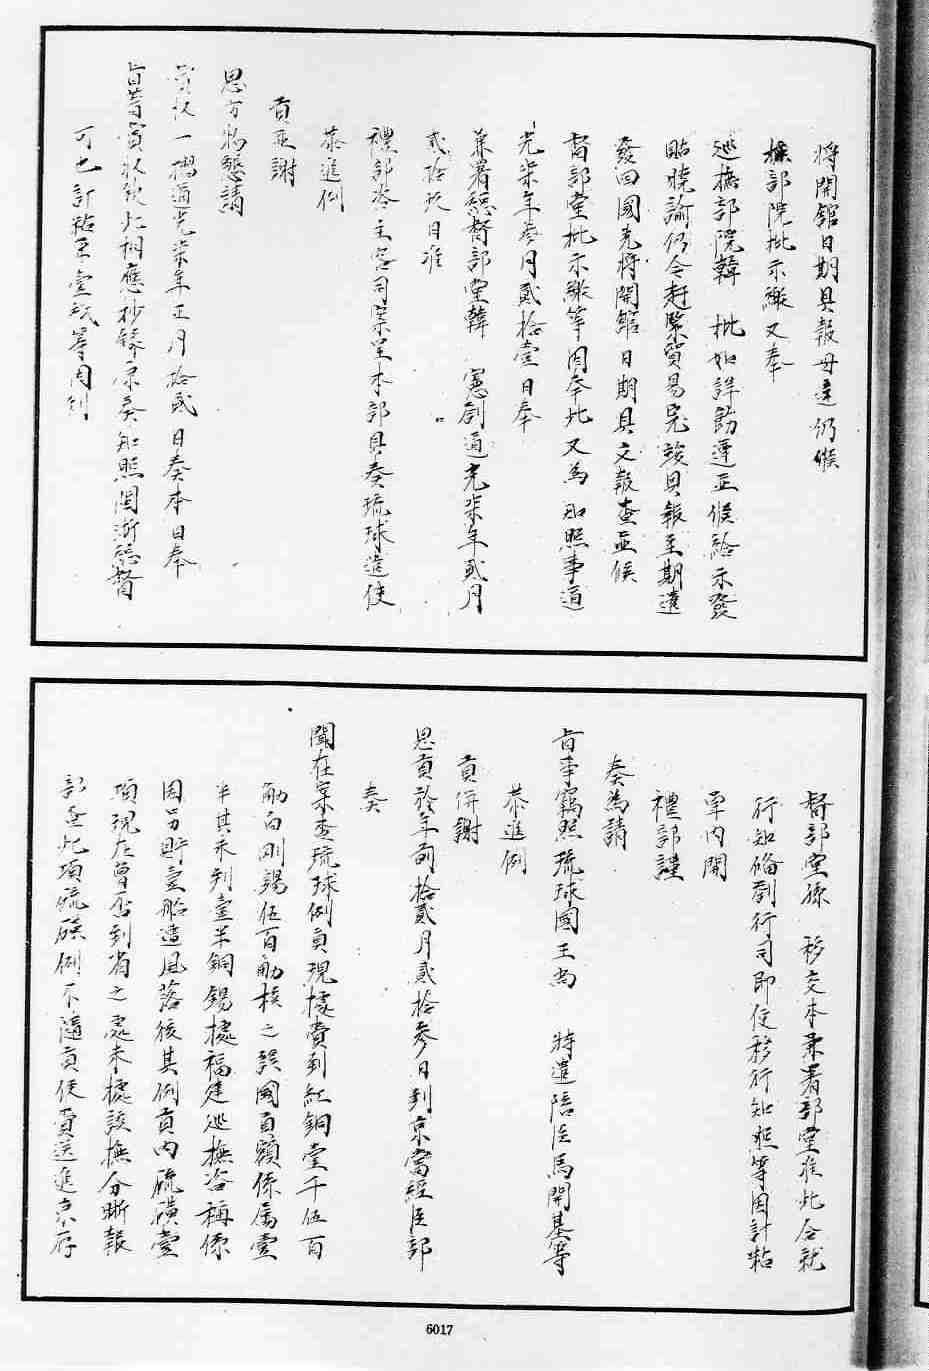 將開館日期具報毋違仍候
撫部院批示繳又奉
巡撫部院韓　批如詳飭遵並候給示發
貼曉諭仍令赶緊貿易完竣具報至期遣
發回國先將開館日期具文報查並候
督部堂批示繳等因奉此又為知照事道
光柒年叁月貳拾壹日奉
兼署總督部堂韓　憲劄道光柒年貳月
貳拾玖日准
禮部咨主客司案呈本部具奏琉球遣使
恭進例
貢並謝
恩方物懇請
賞收一摺道光柒年正月拾貳日奏本日奉
旨著賞收欽此相應抄錄原奏知照閩浙總督
可也計粘單壹紙等因到
督部堂孫　移交本兼署部堂准此合就
行知備劄行司即便移行知照等因計粘
單內開
禮部謹
奏為請
旨事竊照琉球國王尚　特遣陪臣馬開基等
恭進例
貢併謝
恩貢於年前拾貳月貳拾叁日到京當經臣部
奏
聞在案查琉球例貢現據賫到紅銅壹千伍百
觔白剛錫伍百觔核之該國貢額係屬壹
半其未到壹半銅錫據福建巡撫咨稱係
因另貯壹船遭風落後其例貢內硫磺壹
項現在曾否到省之處未據該撫分晰報
部查此項硫磺例不隨貢使賫送進京存
6017